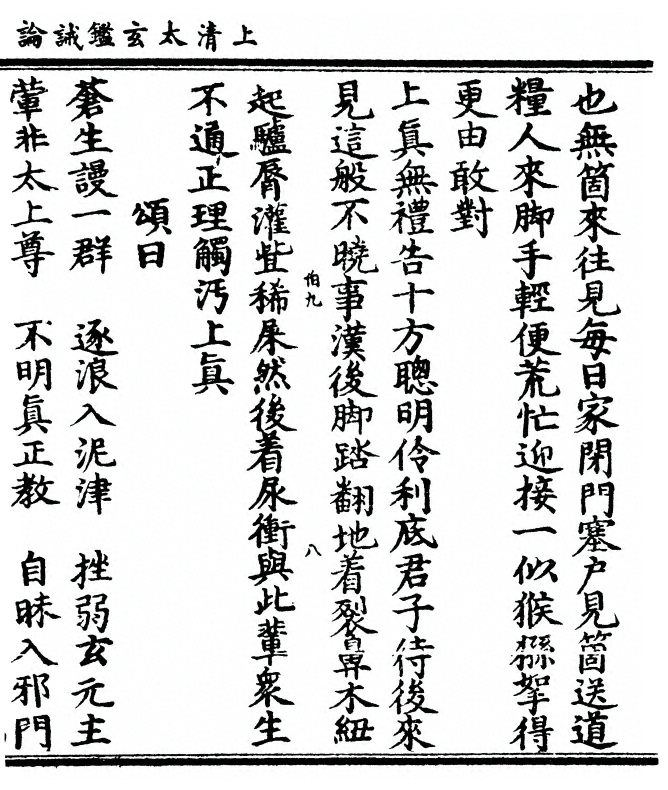 上清太玄鑑誡論
也無箇來往見每日家閉門塞戶見箇送道
糧人來脚手輕便荒忙迎接一似猴猻拏得
更由敢對
上眞無禮告十方聰明伶利底君子待後來
見這般不曉事漢後脚踏翻地着裂鼻木紐
伯九
八
起驢脣灌呰稀屎然後着尿衝與此輩衆生
不通正理觸污上眞
頌曰
蒼生謾一群 逐浪入泥津 挫弱玄元主
葷非太上尊 不明眞正教 自昧入邪門